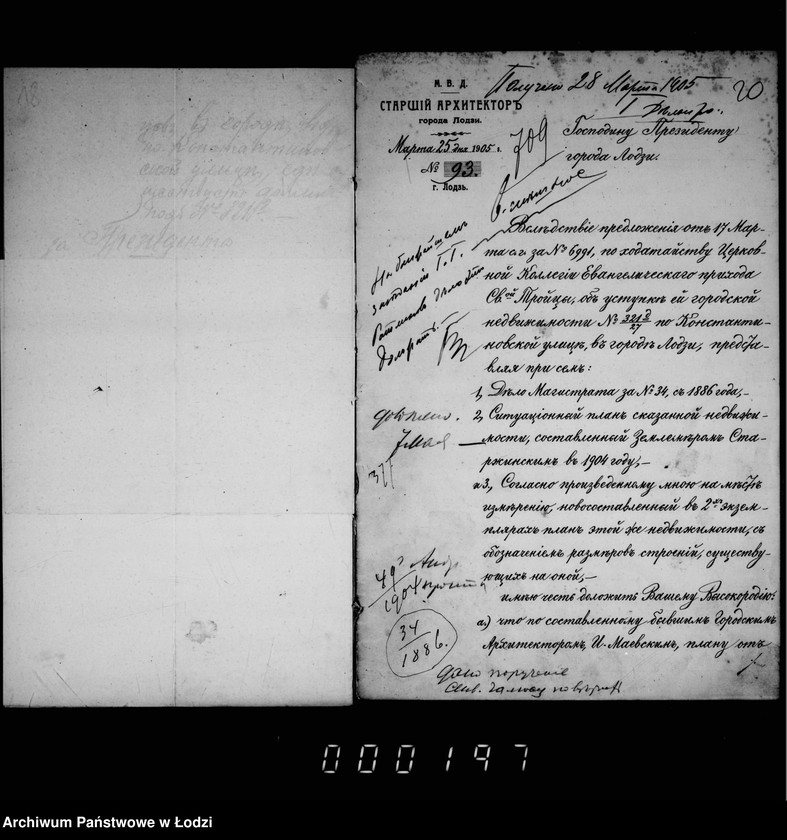 18
Президента
Получено 28 Марта 1905
20
М. В. Д.
СТАРШІЙ АРХИТЕКТОРЪ
города Лодзи.
Марта 25 дня 1905 г.
№ 93.
г. Лодзь.
709
Господину Президенту
города Лодзи.
Вслѣдствіе предложенія отъ 17 Мар-
та с.г. за № 6991, по ходатайству Церков-
ной Коллегіи Евангелическаго прихода
Св.ой Тройцы, объ уступкѣ ей городской
недвижимости № 321 з/27 по Константи-
новской улицѣ, въ городѣ Лодзи, предста-
вляя при семъ:
1, Дѣло Магистрата за № 34, съ 1886 года,-
2, Ситуаціонный планъ сказанной недвижи-
мости, составленный Землемѣромъ Ста-
ржинскимъ въ 1904 году,-
и 3, Согласно произведенному мною на мѣстѣ
измѣренію, новосоставленный въ 2хъ экзем-
плярахъ планъ этой же недвижимости, съ
обозначеніемъ размѣровъ строеній, существу-
ющихъ на оной,-
имѣю честь доложить Вашему Высокородію:
а) что по составленному бывшимъ Городскимъ
Архитекторомъ, И. Маевскимъ, плану отъ
377
49
1904
34
1886.
дано порученіе
000197
Archiwum Państwowe w Łodzi